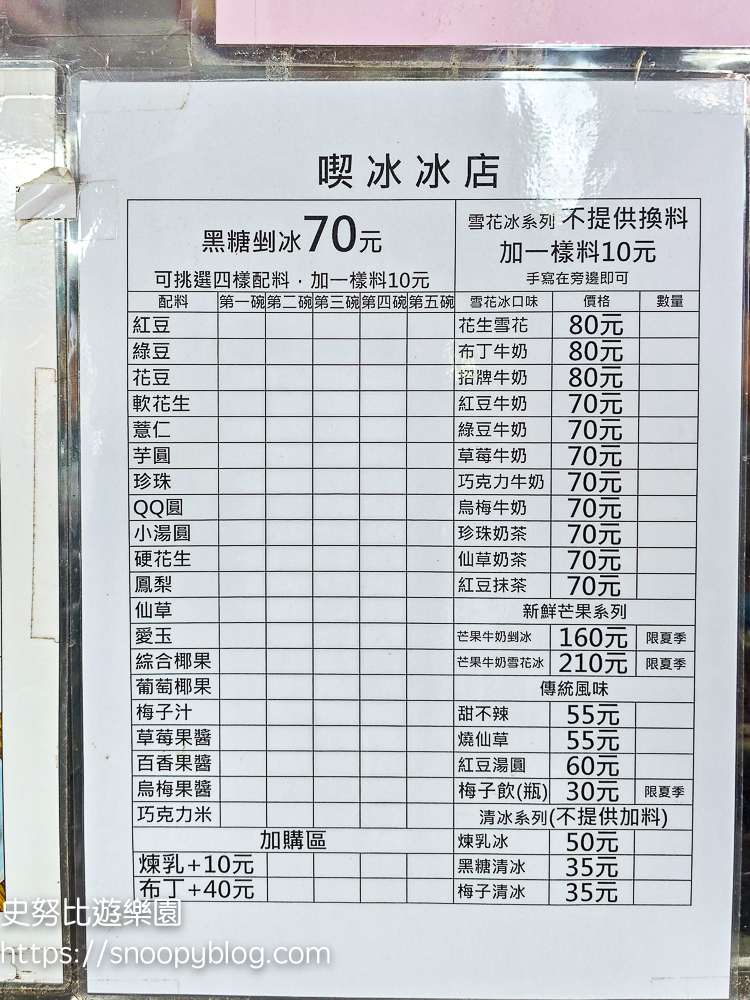 喫冰冰店
黑糖剉冰70元
可挑選四樣配料，加一樣料10元
配料 第一碗 第二碗 第三碗 第四碗 第五碗
紅豆
綠豆
花豆
軟花生
薏仁
芋圓
珍珠
QQ圓
小湯圓
硬花生
鳳梨
仙草
愛玉
綜合椰果
葡萄椰果
梅子汁
草莓果醬
百香果醬
烏梅果醬
巧克力米
加購區
煉乳+10元
布丁+40元
雪花冰系列 不提供換料
加一樣料10元
手寫在旁邊即可
雪花冰口味 價格 數量
花生雪花 80元
布丁牛奶 80元
招牌牛奶 80元
紅豆牛奶 70元
綠豆牛奶 70元
草莓牛奶 70元
巧克力牛奶 70元
烏梅牛奶 70元
珍珠奶茶 70元
仙草奶茶 70元
紅豆抹茶 70元
新鮮芒果系列
芒果牛奶剉冰 160元 限夏季
芒果牛奶雪花冰 210元 限夏季
傳統風味
甜不辣 55元
燒仙草 55元
紅豆湯圓 60元
梅子飲(瓶) 30元 限夏季
清冰系列(不提供加料)
煉乳冰 50元
黑糖清冰 35元
梅子清冰 35元
史努比遊樂園
https://snoopyblog.com